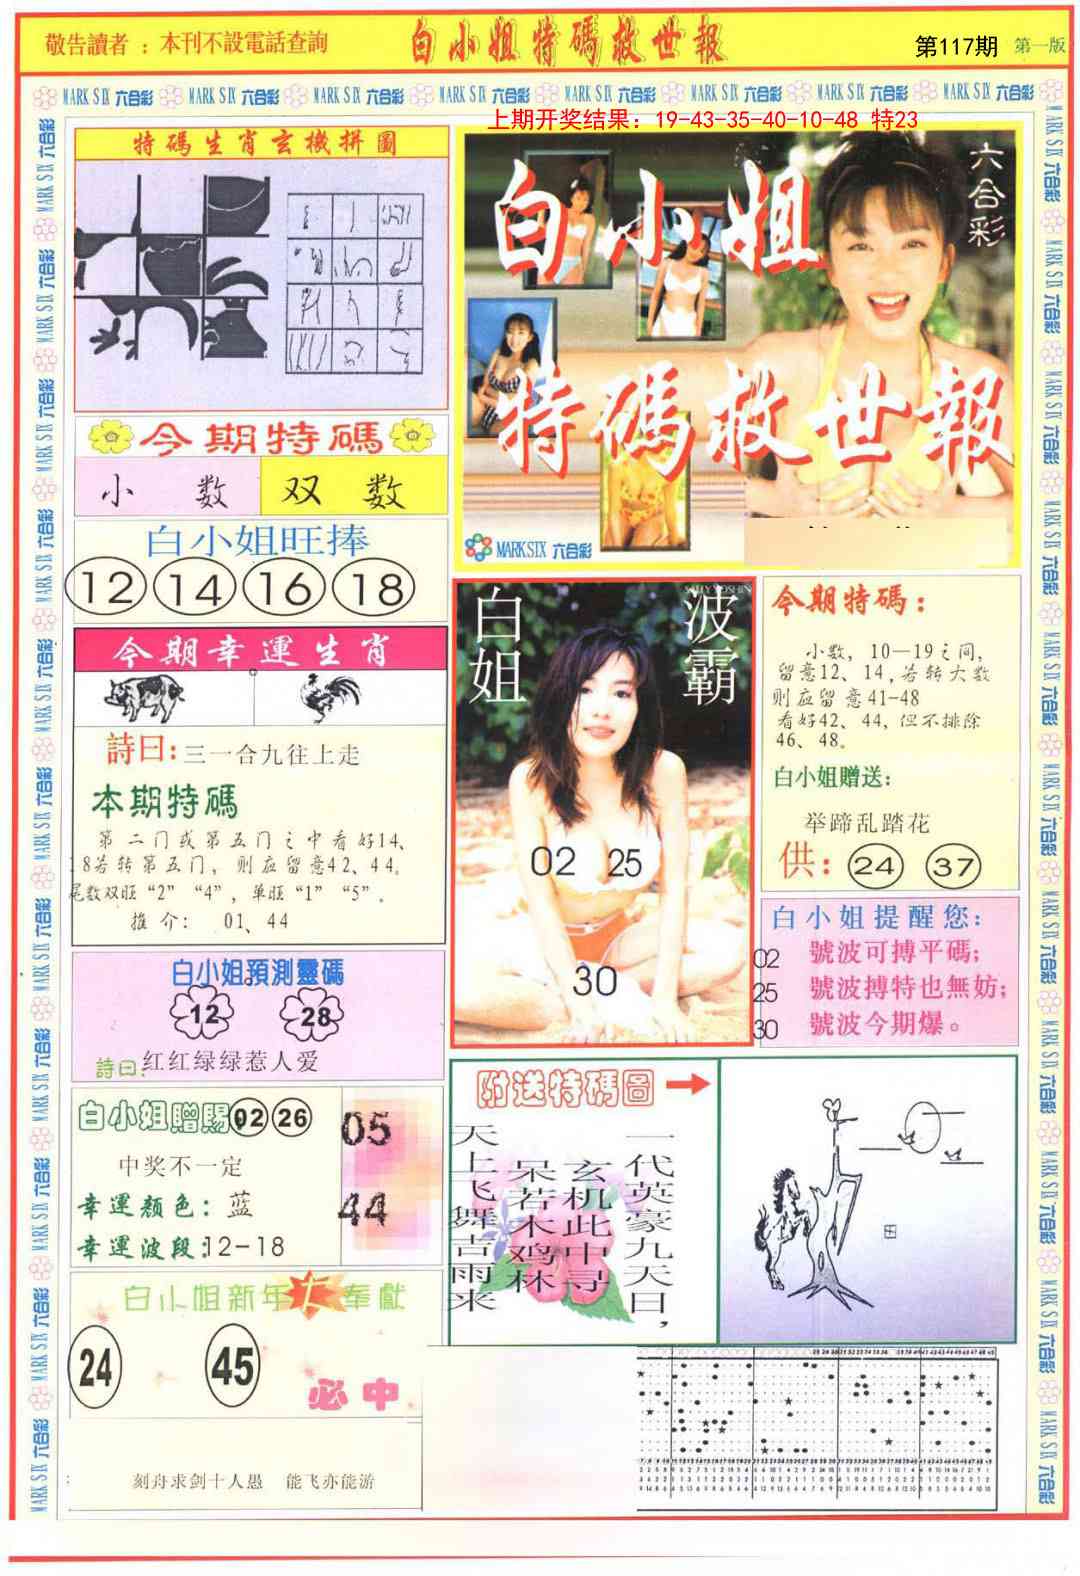 敬告讀者：本刊不設電話查詢
白小姐特碼救世報
第117期
第一版
MARK SIX 六合彩 MARK SIX 六合彩 MARK SIX 六合彩 MARK SIX 六合彩 MARK SIX 六合彩 MARK SIX 六合彩 MARK SIX 六合彩 MARK SIX 六合彩
上期开奖结果：19-43-35-40-10-48 特23
特碼生肖玄機拼圖
六合彩
白小姐
特碼救世報
MARK SIX 六合彩
今期特碼
小数
双数
白小姐旺捧
12 14 16 18
今期幸運生肖
詩曰:三一合九往上走
本期特碼
第二门或第五门之中看好14、
18若转第五门，则应留意42、44。
尾数双旺“2”“4”，单旺“1”“5”。
推介：01、44
白小姐預測靈碼
12 28
詩曰:红红绿绿惹人爱
白小姐贈賜:02 26
中奖不一定
幸運颜色：蓝
幸運波段:12-18
05
44
白小姐新年大奉獻
24 45
必中
刻舟求剑十人愚 能飞亦能游
白姐
波霸
02 25
30
今期特碼：
小数，10—19之间，
留意12、14,若转大数
则应留意41-48
看好42、44,但不排除
46、48。
白小姐贈送:
举蹄乱踏花
供：24 37
白小姐提醒您:
02 號波可搏平碼;
25 號波搏特也無妨;
30 號波今期爆。
附送特碼圖
一代英豪九天日，
玄机此中寻
呆若木鸡林
天上飞舞吉雨来
田